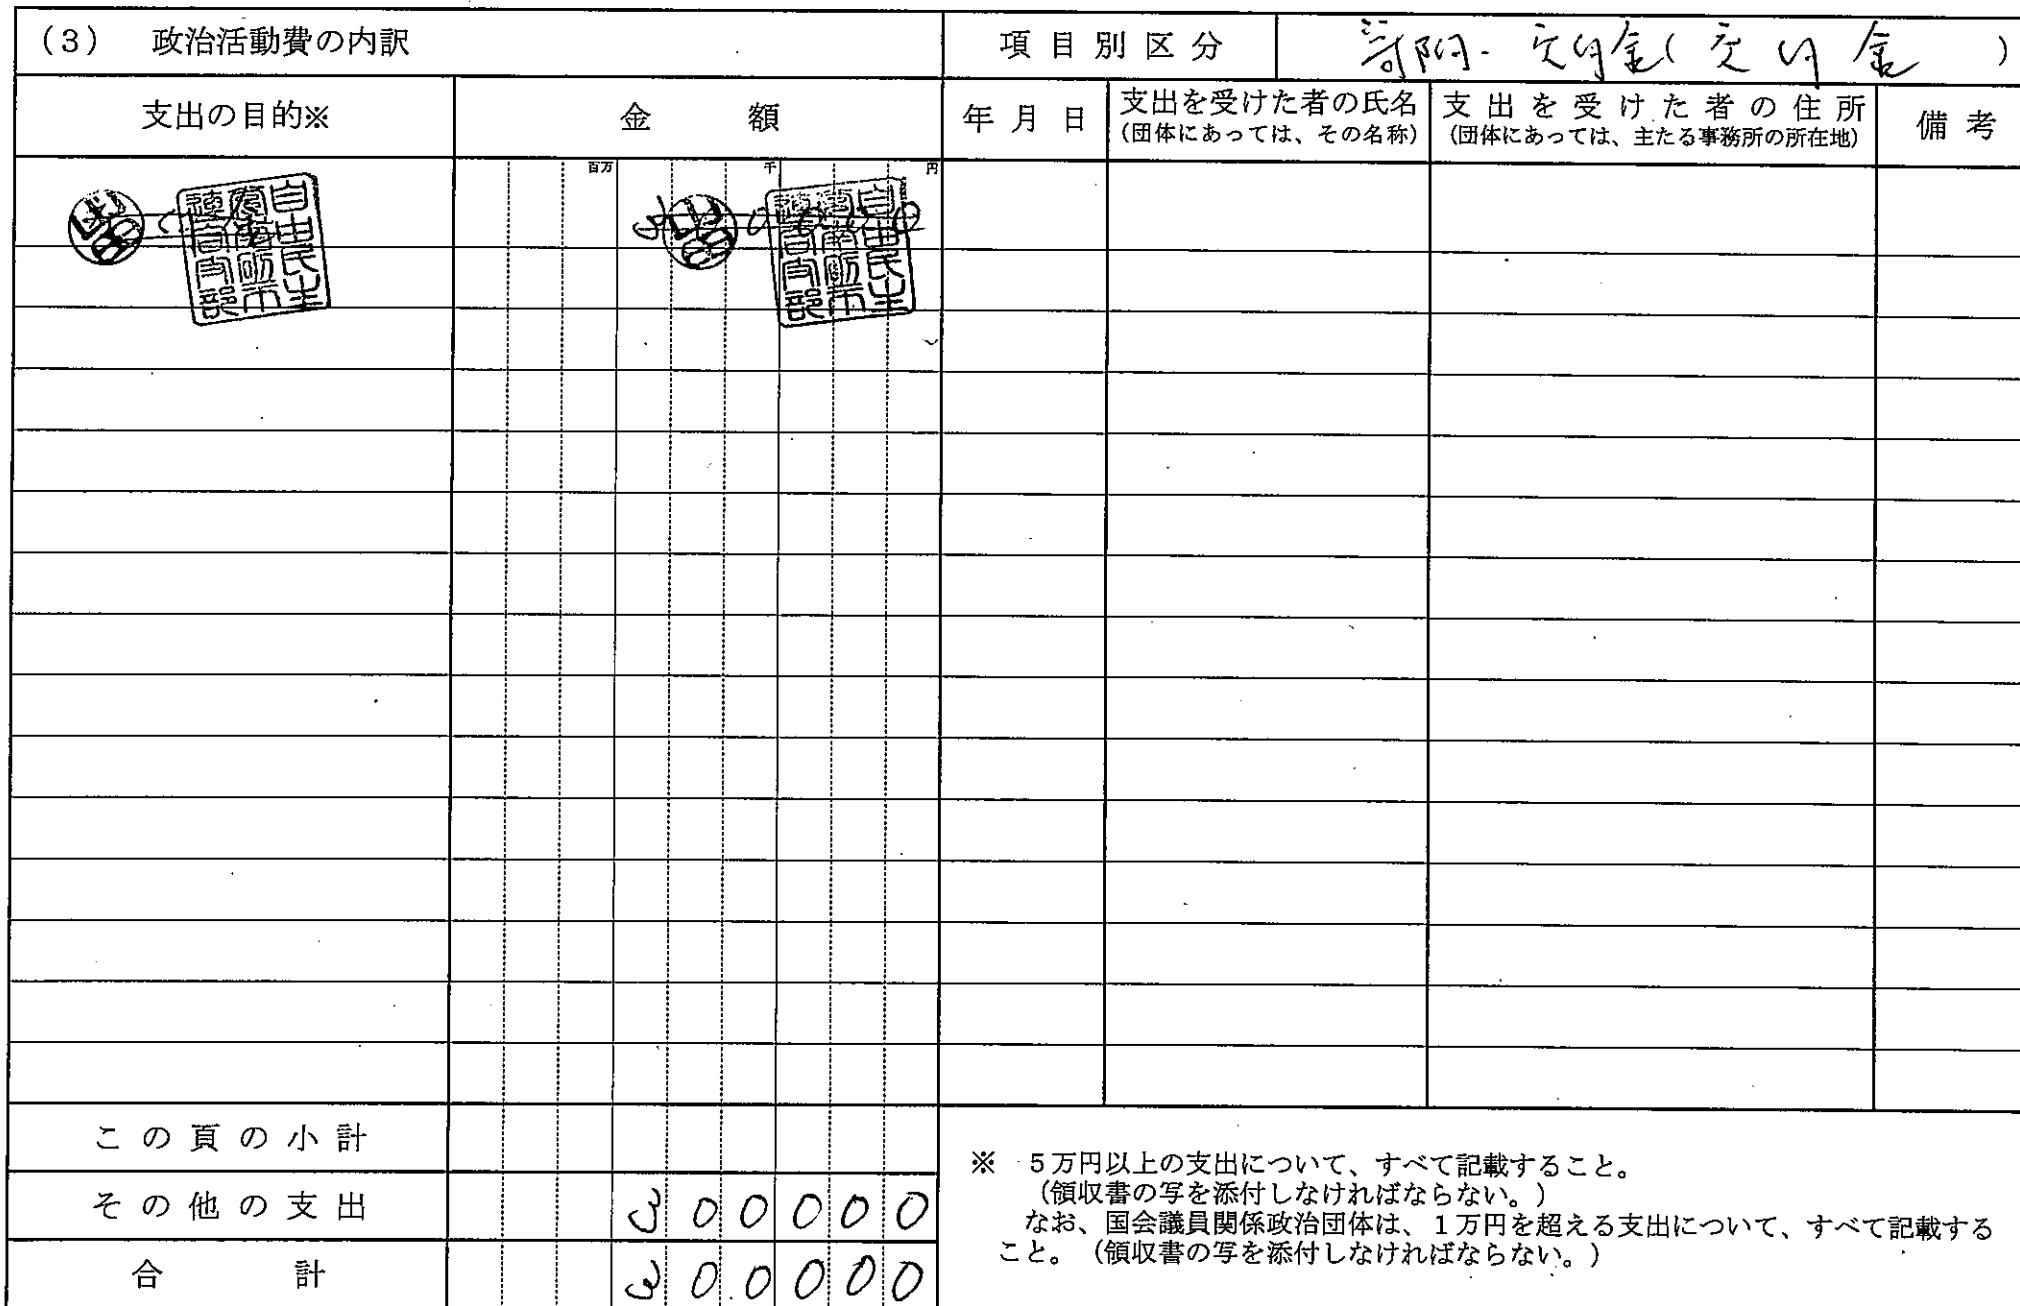 (3) 政治活動費の内訳
項目別区分
寄附・交付金(交付金)
支出の目的※
金額
年月日
支出を受けた者の氏名
(団体にあっては、その名称)
支出を受けた者の住所
(団体にあっては、主たる事務所の所在地)
備考
百万 千 円
自由民主
支部
自由民主
支部
この頁の小計
その他の支出 300000
合計 300000
※ 5万円以上の支出について、すべて記載すること。
(領収書の写を添付しなければならない。)
なお、国会議員関係政治団体は、1万円を超える支出について、すべて記載する
こと。(領収書の写を添付しなければならない。)